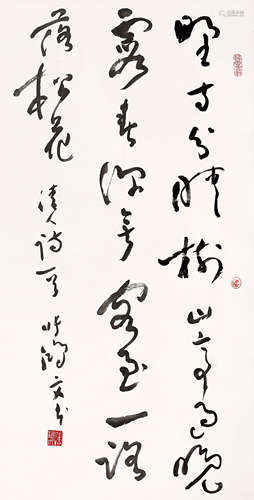 野寺分晴樹山亭過晚
霞春深無客到一路
落松花
清人詩一首 鴻文書